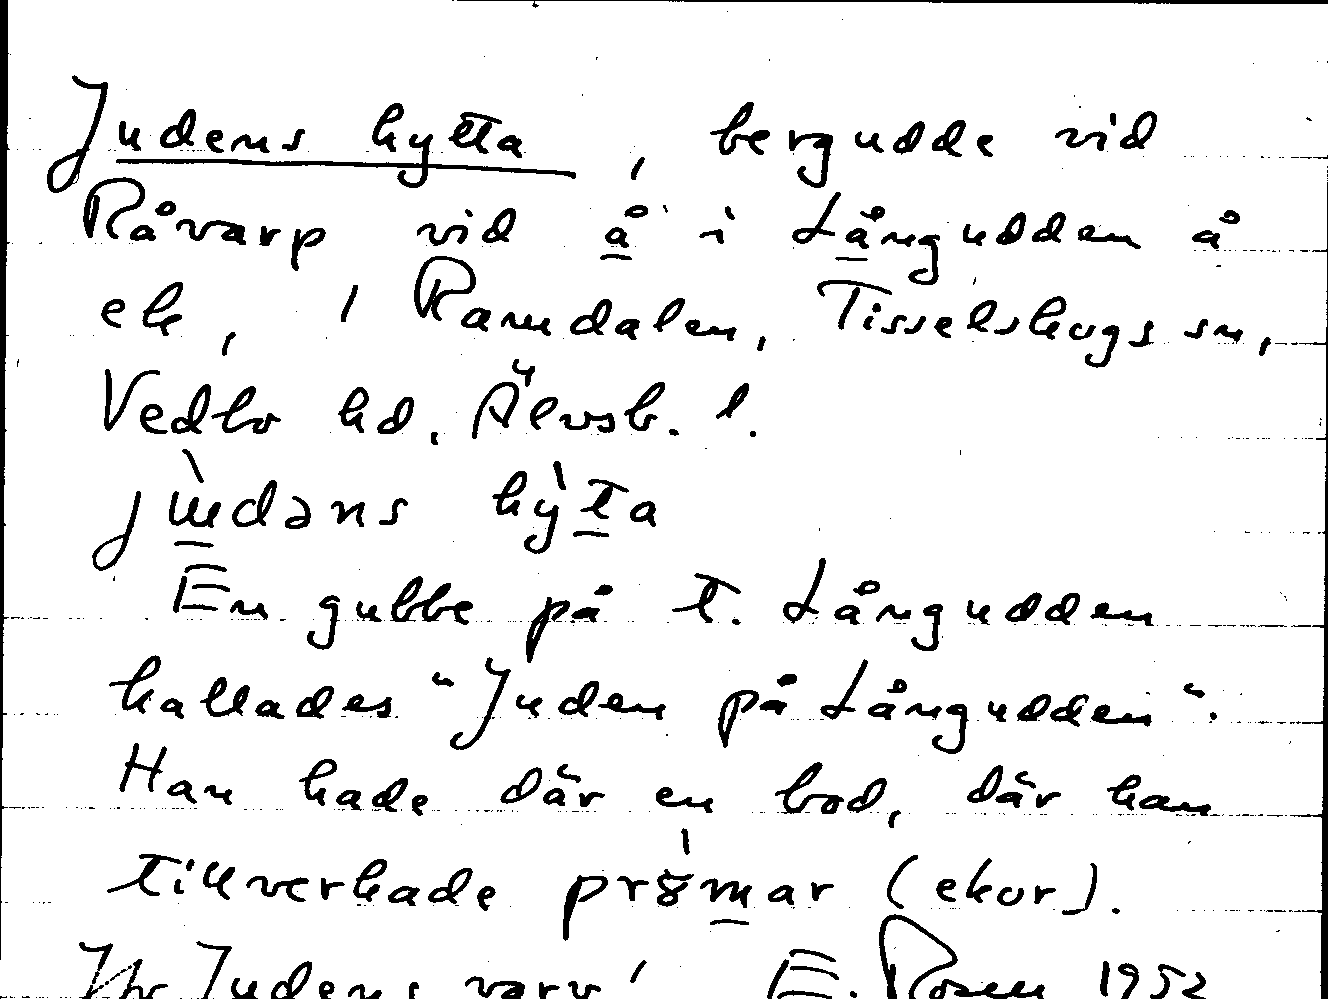 Judens hytta, bergudde vid
Råvarp vid å i Långudden å
ek, i Ramdalen, Tisselskogs sn,
Vedbo hd, Älvsb. l.
hỳta
En gubbe på t. Långudden
kallades "Juden på Långudden".
Han hade där en bod, där han
tillverkade prömar (ekor).
Judens varv! E. Rosen 1952